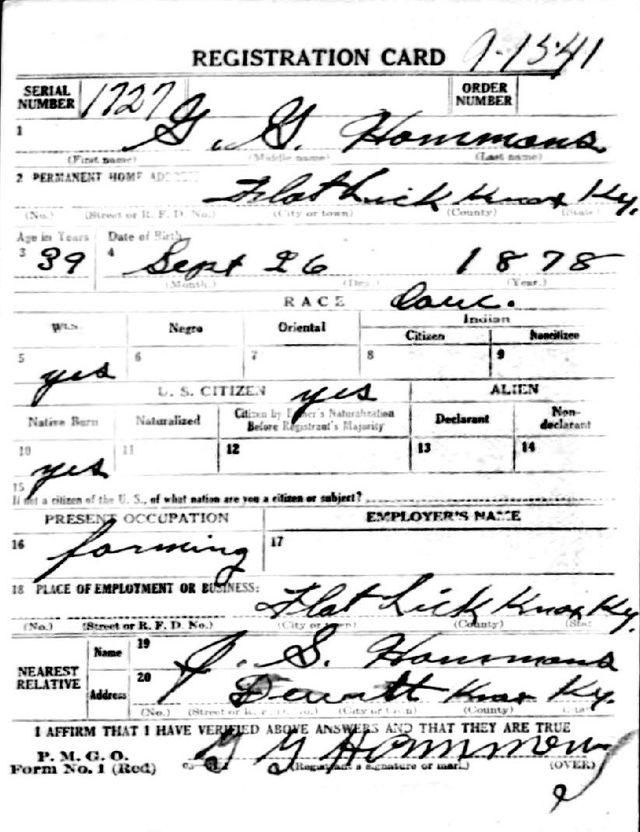 REGISTRATION CARD 9-15-41
SERIAL NUMBER 1727 ORDER NUMBER
1 G. G. Hammons
(First name) (Middle name) (Last name)
2 PERMANENT HOME ADDRESS
Flat Lick Knox Ky.
(No.) (Street or R. F. D. No.) (City or town) (County) (State)
Age in Years Date of Birth
3 39 4 Sept 26 1878
(Month.) (Day.) (Year.)
RACE Cauc.
White Negro Oriental Indian
Citizen Noncitizen
5 yes 6 7 8 9
U. S. CITIZEN yes ALIEN
Native Born Naturalized Citizen by Father's Naturalization Before Registrant's Majority Declarant Non-declarant
10 yes 11 12 13 14
15
If not a citizen of the U. S., of what nation are you a citizen or subject?
PRESENT OCCUPATION EMPLOYER'S NAME
16 farming 17
18 PLACE OF EMPLOYMENT OR BUSINESS:
Flat Lick Knox Ky.
(No.) (Street or R. F. D. No.) (City or town) (County) (State)
NEAREST RELATIVE Name 19 J. S. Hammons
Address 20 Dewitt Knox Ky.
(No.) (Street or R. F. D. No.) (City or town) (County) (State)
I AFFIRM THAT I HAVE VERIFIED ABOVE ANSWERS AND THAT THEY ARE TRUE
P. M. G. O.
Form No. 1 (Red) G G Hammons
(Registrant's signature or mark) (OVER)